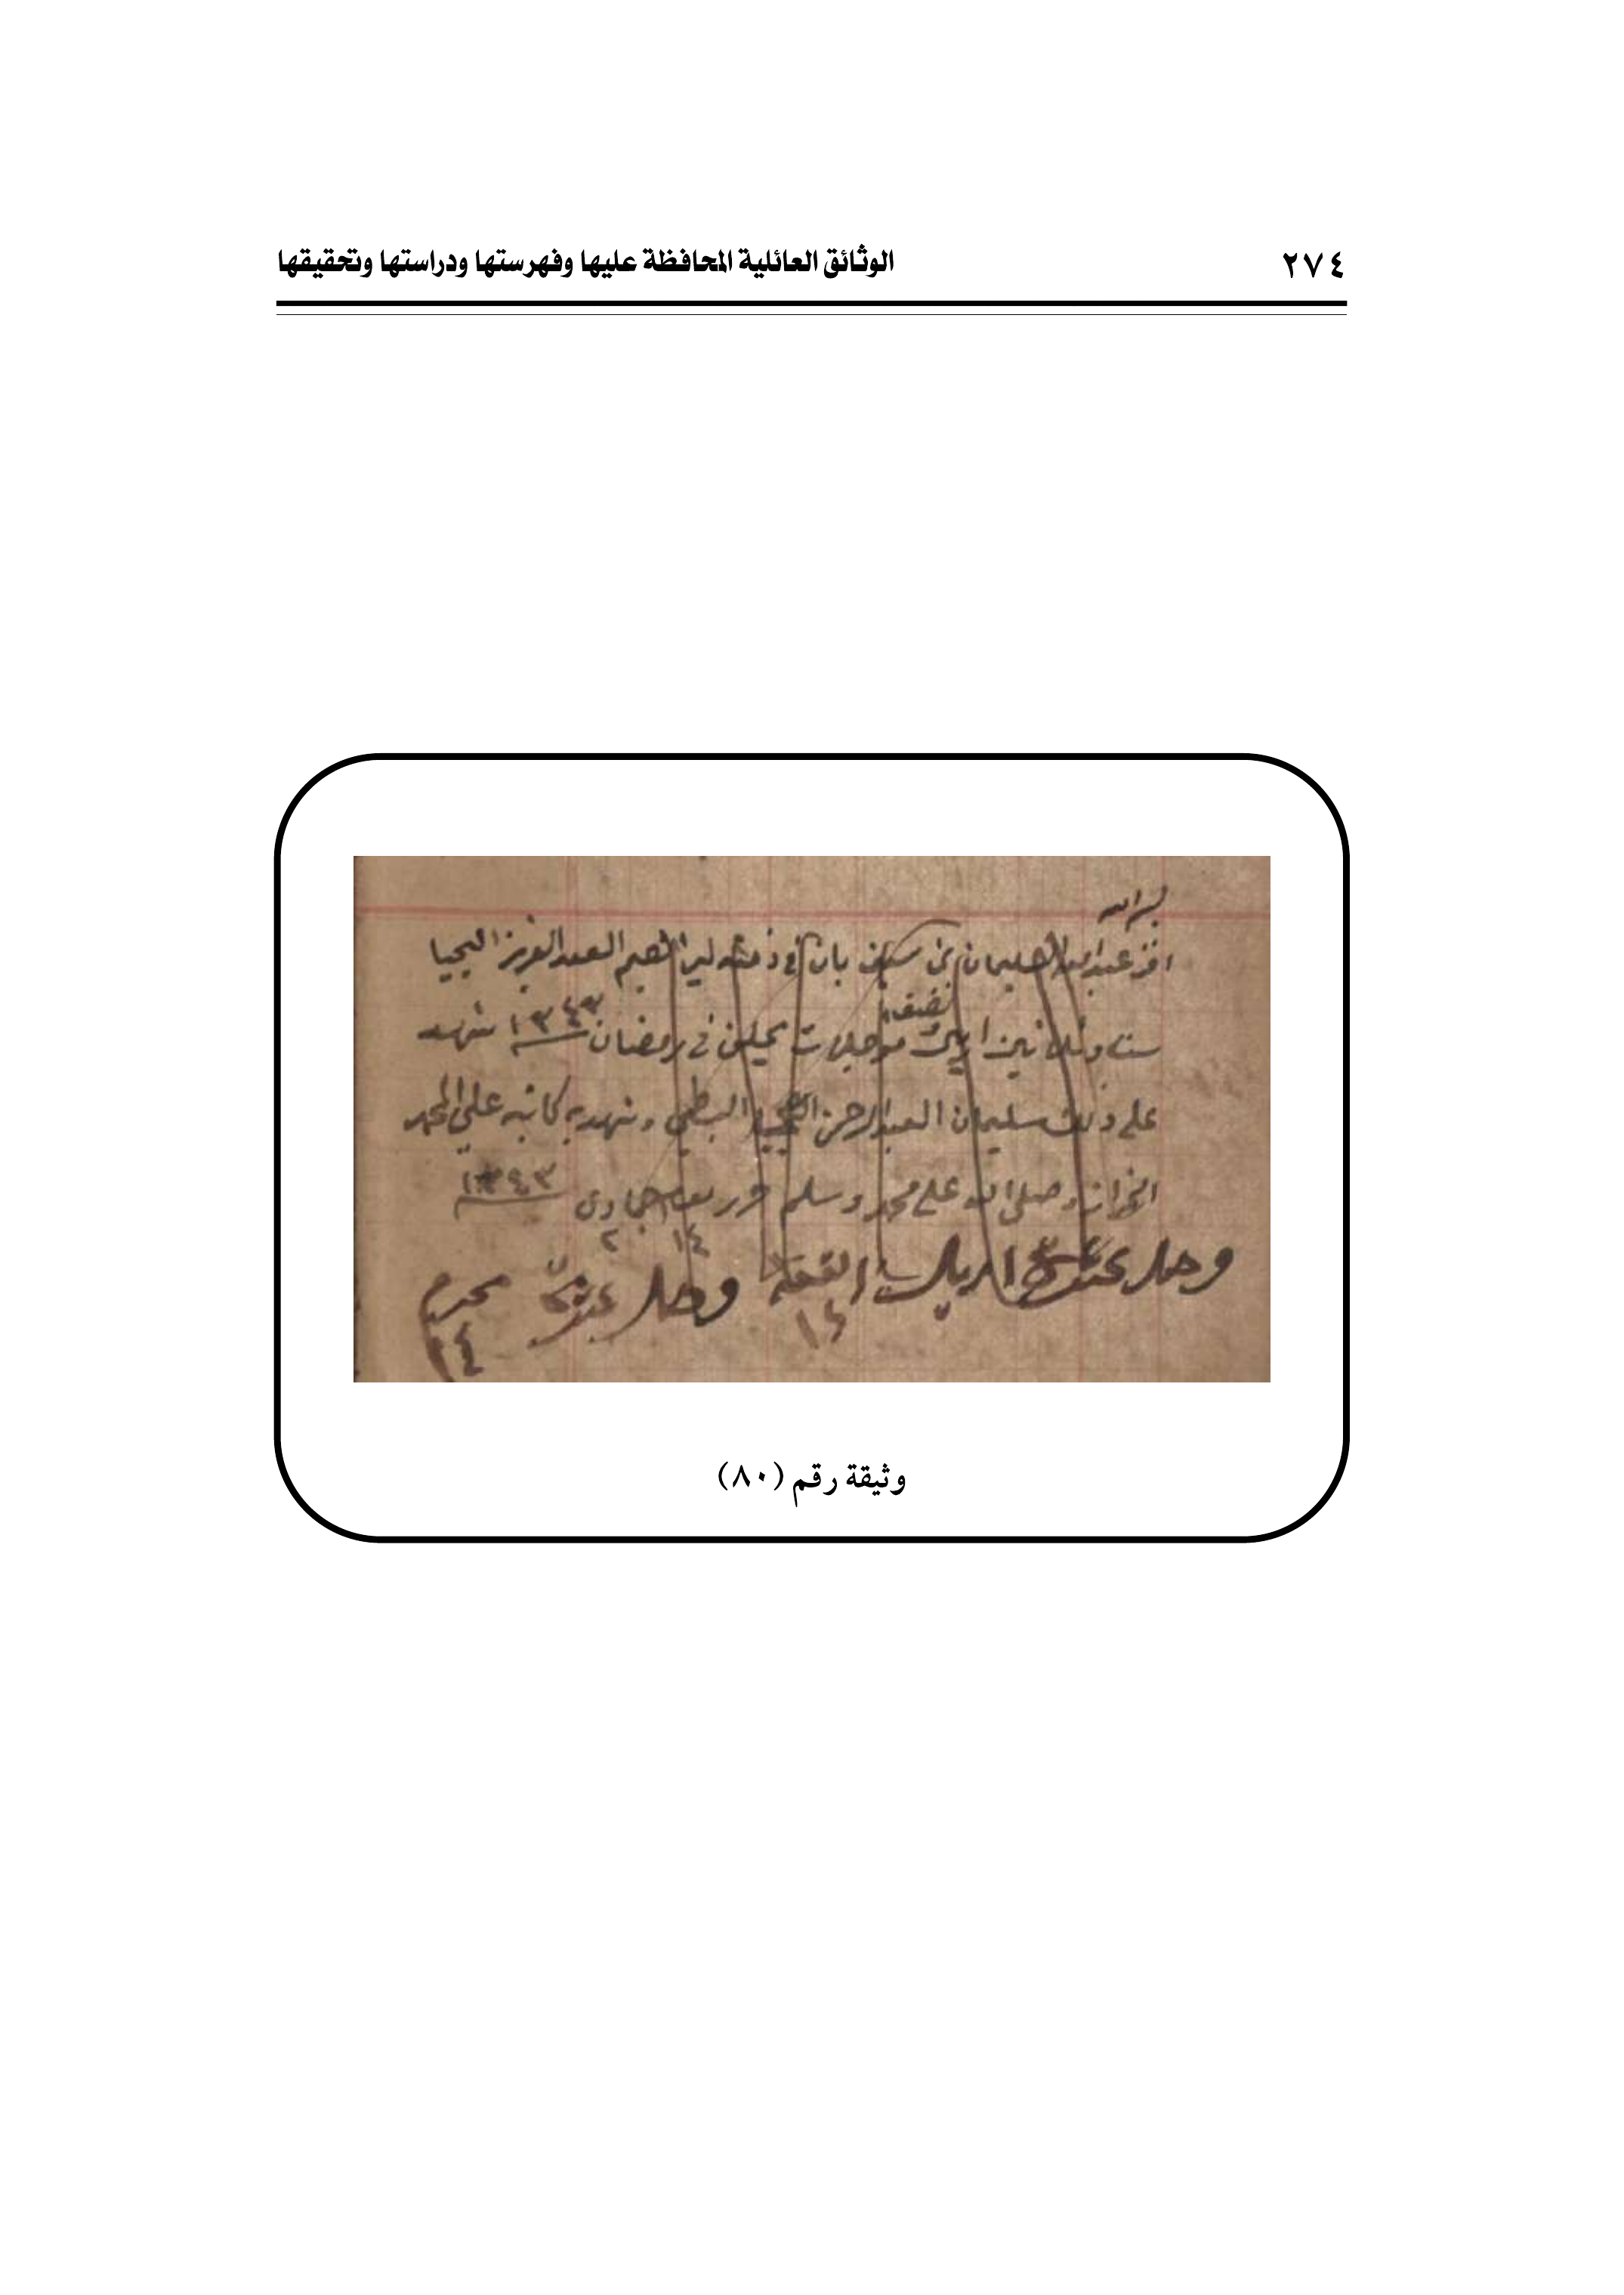 ٢٧٤
الوثائق العائلية المحافظة عليها وفهرستها ودراستها وتحقيقها
بسم الله
اقر عبدالله السليمان بن سيف بان في ذمته لبراهيم العبدالعزيز اليحيا
ستا وثلاثين اريل ونصف مؤجلات يحلن في رمضان ١٣٤٣ شهد
على ذلك سليمان العبدالرحمن البطي وشهد به كاتبه علي المحمد
وصلى الله على محمد وسلم حرر جمادى ١٣٤٣
١٤ ٢
وصل اريل القعدة وصل محرم
١٤ ١٤
وثيقة رقم (٨٠)